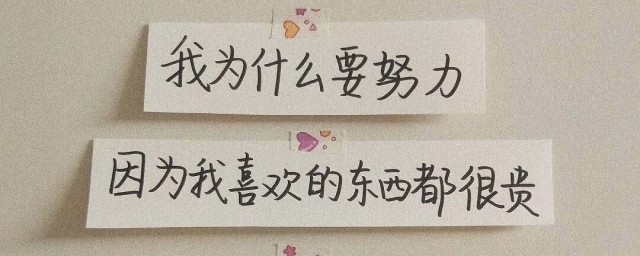 我为什么要努力
因为我喜欢的东西都很贵